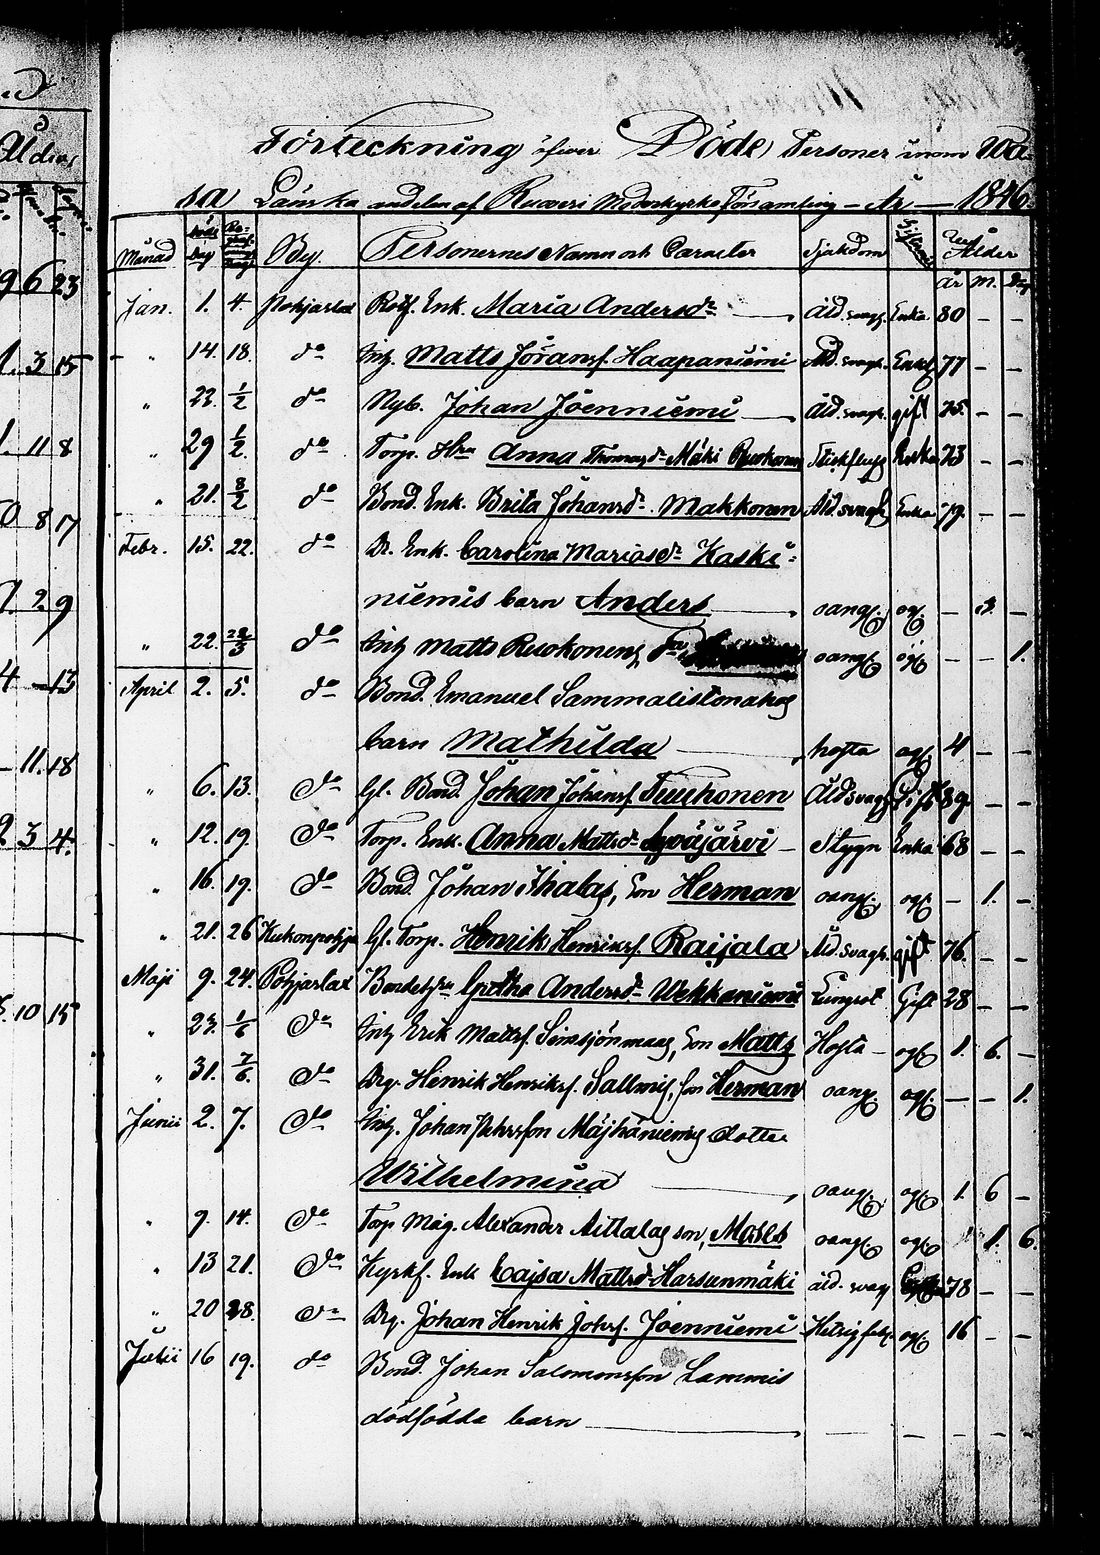 Förteckning öfwer Döde Personer inom Wa-
sa Länska andelen af Ruovesi Moderkyrko Församling — År — 1846.
Månad Döds dag By. Personernes Namn och Caracter Sjukdom Ålder
år m. dag
Jan. 1. 4. Pohjaslax Rotf. Enk. Maria Andersdr Åld. svagh. Enka 80 – –
" 14. 18. do Inh. Matts Göransf. Haapaniemi Åld. svagh. Enkl. 77 – –
" 22. 1/2 do Nyb. Johan Joenniemi Åld. svagh. gift 75. – –
" 29 1/2. do Torp. Hru Anna Thomasdr Mäki Ruokonen Stickfluss 73 – –
" 21. 8/2 do Bond. Enk. Brita Johansdr. Makkonen Åld. svagh. Enka 79. – –
Febr. 15. 22. do Dr. Enk. Carolina Mariasdr Kaski-
niemis barn Anders oang. og. – 2. –
" 22. 22/3 do Inh Matts Ruokonens oang. og – – 1.
April 2. 5. do Bond. Emanuel Sammalistonahos
barn Mathilda hosta og. 4 – –
" 6. 13. do Gl. Bond. Johan Johansf. Tuuhonen Åld svagh. Gift 89. – –
" 12. 19. do Torp. Enk. Anna Mattsdr Syväjärvi – Stygn Enka 68 – –
" 16. 19. do Bond. Johan Ihalas, Son Herman oang. og. – 1. –
" 21. 26 Kukonpohja Gl. Torp. Henrik Henriksf. Raijala Åld. svagh. gift 76. – –
Maji 9. 24. Pohjaslax Bondehru Gretha Andersdr Wekkaniemi Lungsot Gift 28 – –
" 23. 1/6 do Inh Erik Mattsf. Simsjönmaas, Son Matts Hosta – og 1. 6. –
" 31. 7/6. do Drg. Henrik Henriksf. Sallmis, son Herman oang. og. – – 1.
Junii 2. 7. do Inh. Johan Pehrsson Majhaniemis dotter
Wilhelmina oang. og 1. 6 –
" 9. 14. do Torp Mag. Alexander Aittalas son, Moses oang. og 1. 6.
" 13 21. do Kyrkf. Enk Cajsa Mattsdr Harsunmäki åld. svag 73 – –
" 20 28. do Drg. Johan Henrik Johsf. Joenniemi og 16 – –
Julii 16 19. do Bond. Johan Salomonsson Lammis
dödfödda barn – – – –